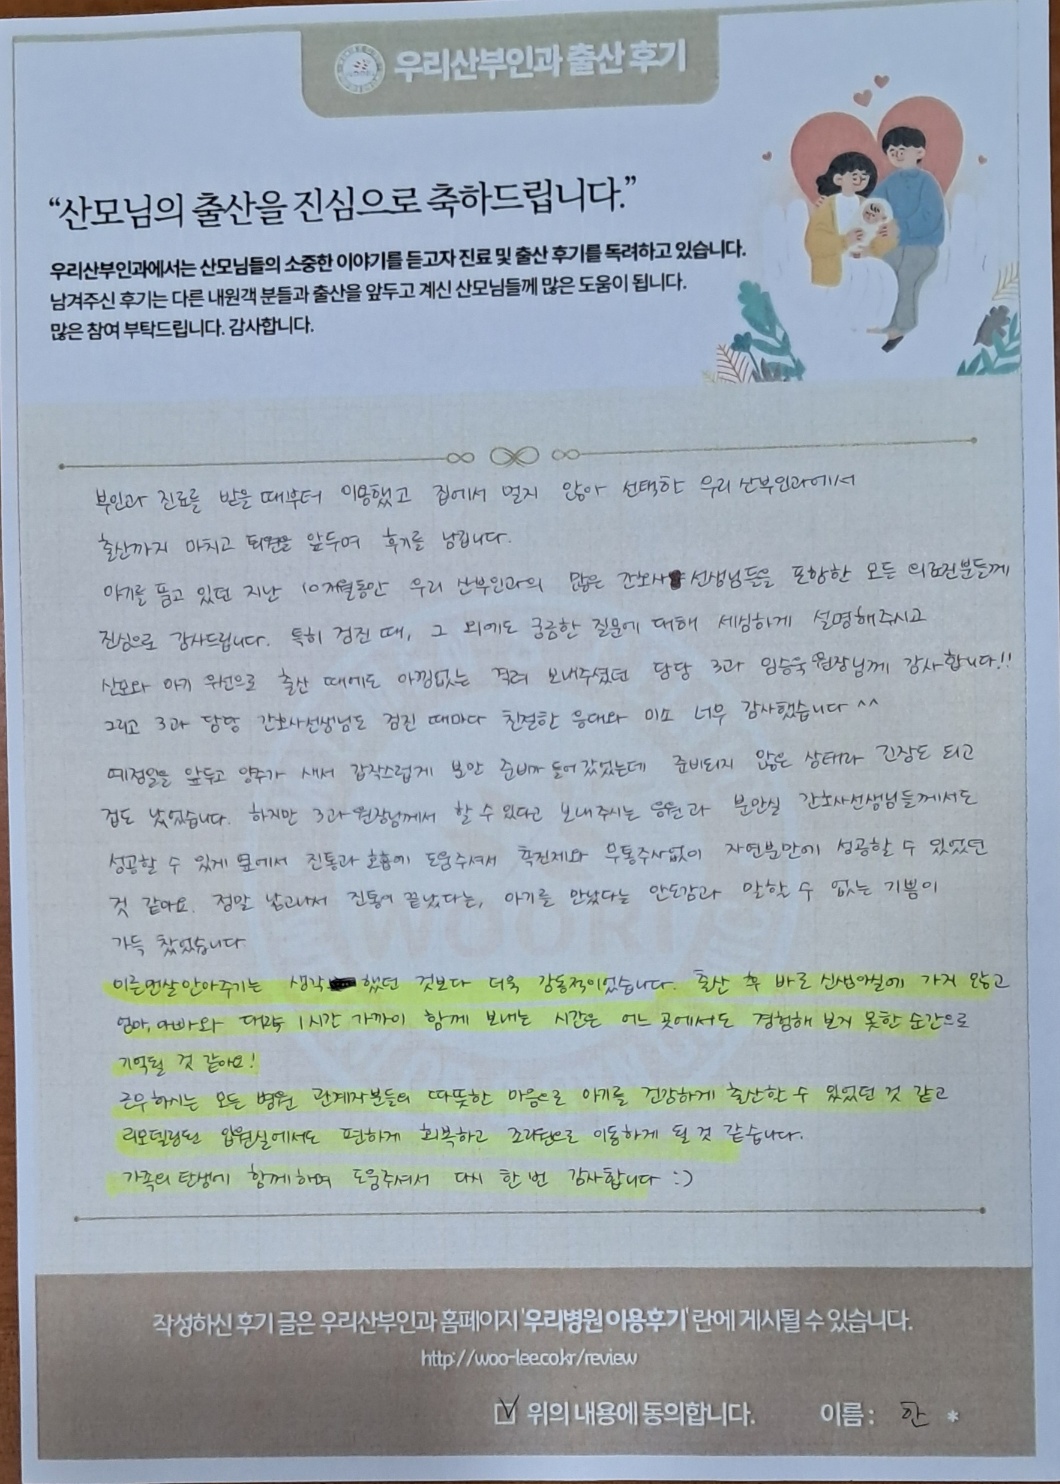 우리산부인과 출산 후기
“산모님의 출산을 진심으로 축하드립니다.”
우리산부인과에서는 산모님들의 소중한 이야기를 듣고자 진료 및 출산 후기를 독려하고 있습니다.
남겨주신 후기는 다른 내원객 분들과 출산을 앞두고 계신 산모님들께 많은 도움이 됩니다.
많은 참여 부탁드립니다. 감사합니다.
부인과 진료를 받을 때부터 이용했고 집에서 멀지 않아 선택한 우리 산부인과에서
출산까지 마치고 퇴원을 앞두며 후기를 남깁니다.
아기를 품고 있던 지난 10개월동안 우리 산부인과의 많은 간호사 선생님들을 포함한 모든 의료진분들께
진심으로 감사드립니다. 특히 검진 때, 그 외에도 궁금한 질문에 대해 세심하게 설명해주시고
산모와 아기 우선으로 출산 때에도 아낌없는 격려 보내주셨던 담당 3과 임승욱 원장님께 감사합니다!!
그리고 3과 담당 간호사선생님도 검진 때마다 친절한 응대와 미소 너무 감사했습니다 ^^
예정일을 앞두고 양수가 새서 갑작스럽게 분만 준비가 들어갔었는데 준비되지 않은 상태라 긴장도 되고
겁도 났었습니다. 하지만 3과 원장님께서 할 수 있다고 보내주시는 응원과 분만실 간호사선생님들께서도
성공할 수 있게 옆에서 진통과 호흡에 도움주셔서 촉진제와 무통주사없이 자연분만에 성공할 수 있었던
것 같아요. 정말 낳고나서 진통이 끝났다는, 아기를 만났다는 안도감과 말할 수 없는 기쁨이
가득 찼었습니다
이른맨살안아주기는 생각했던 것보다 더욱 감동적이었습니다. 출산 후 바로 신생아실에 가지 않고
엄마, 아빠와 대략 1시간 가까이 함께 보내는 시간은 어느 곳에서도 경험해 보지 못한 순간으로
기억될 것 같아요!
근무하시는 모든 병원 관계자분들의 따뜻한 마음으로 아기를 건강하게 출산할 수 있었던 것 같고
리모델링된 입원실에서도 편하게 회복하고 조리원으로 이동하게 될 것 같습니다.
가족의 탄생에 함께하며 도움주셔서 다시 한 번 감사합니다 :)
작성하신 후기 글은 우리산부인과 홈페이지 '우리병원 이용후기' 란에 게시될 수 있습니다.
http://woo-lee.co.kr/review
위의 내용에 동의합니다. 이름 : 한 *